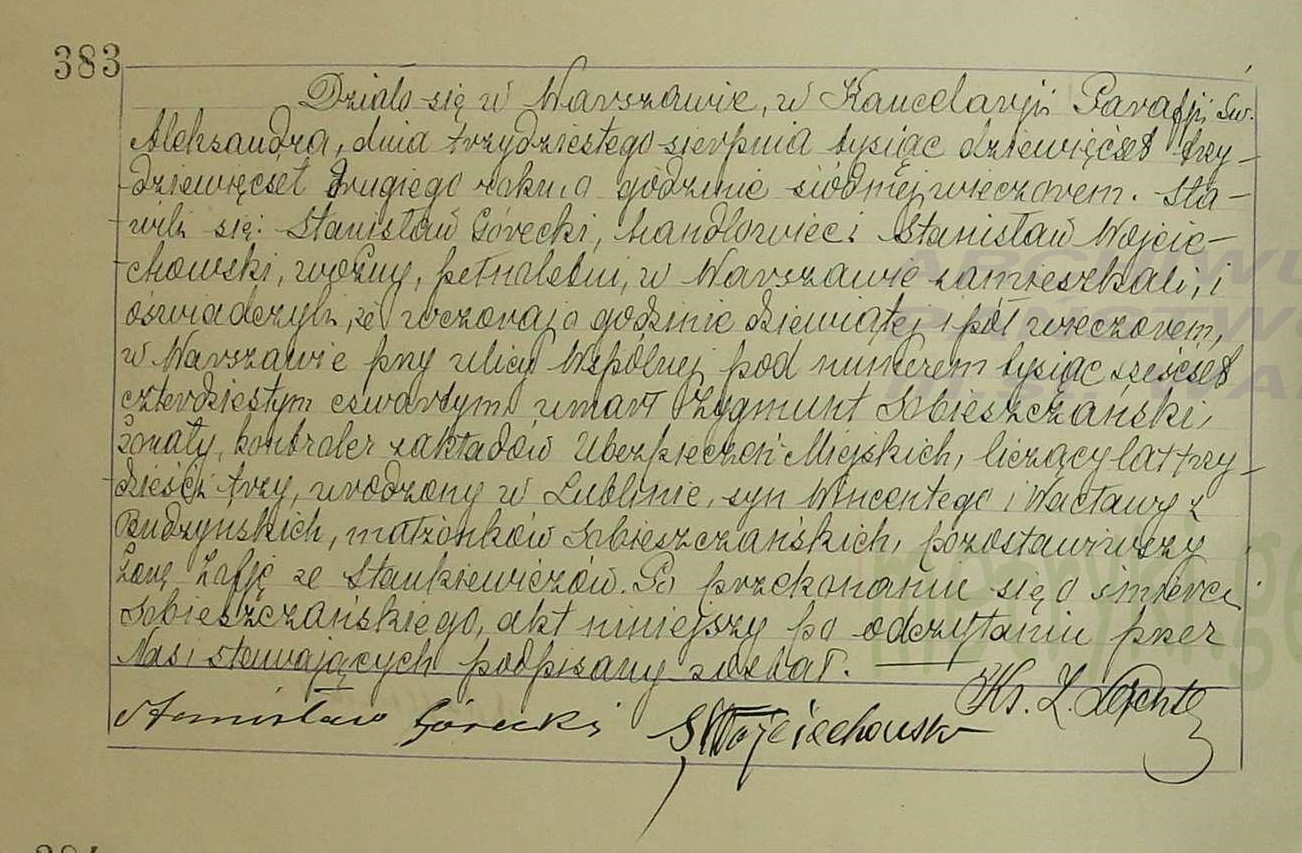 383
Działo się w Warszawie, w Kancelarji Parafji Św.
Aleksandra, dnia trzydziestego sierpnia tysiąc dziewięćset trzy-
dziewięcset drugiego roku o godzinie siódmej wieczorem. Sta-
wili się: Stanisław Górecki, handlowiec i Stanisław Wojcie-
chowski, woźny, pełnoletni, w Warszawie zamieszkali, i
oświadczyli, że wczoraj o godzinie dziewiątej i pół wieczorem,
w Warszawie przy ulicy Wspólnej pod numerem tysiąc sześćset
czterdziestym czwartym umarł Zygmunt Sobieszczański,
żonaty, kontroler zakładów Ubezpieczeń Miejskich, liczący lat trzy-
dzieści trzy, urodzony w Lublinie, syn Wincentego i Wacławy z
Budzyńskich, małżonków Sobieszczańskich, pozostawiwszy
żonę Zofję ze Stankiewiczów. Po przekonaniu się o śmierci
Sobieszczańskiego, akt niniejszy po odczytaniu przez
Nas i stawających podpisany został.
Ks. Z.
Stanisław Górecki S Wojciechowski
ARCHIWU
PAŃSTWO
W WARSZA
metryki.ge